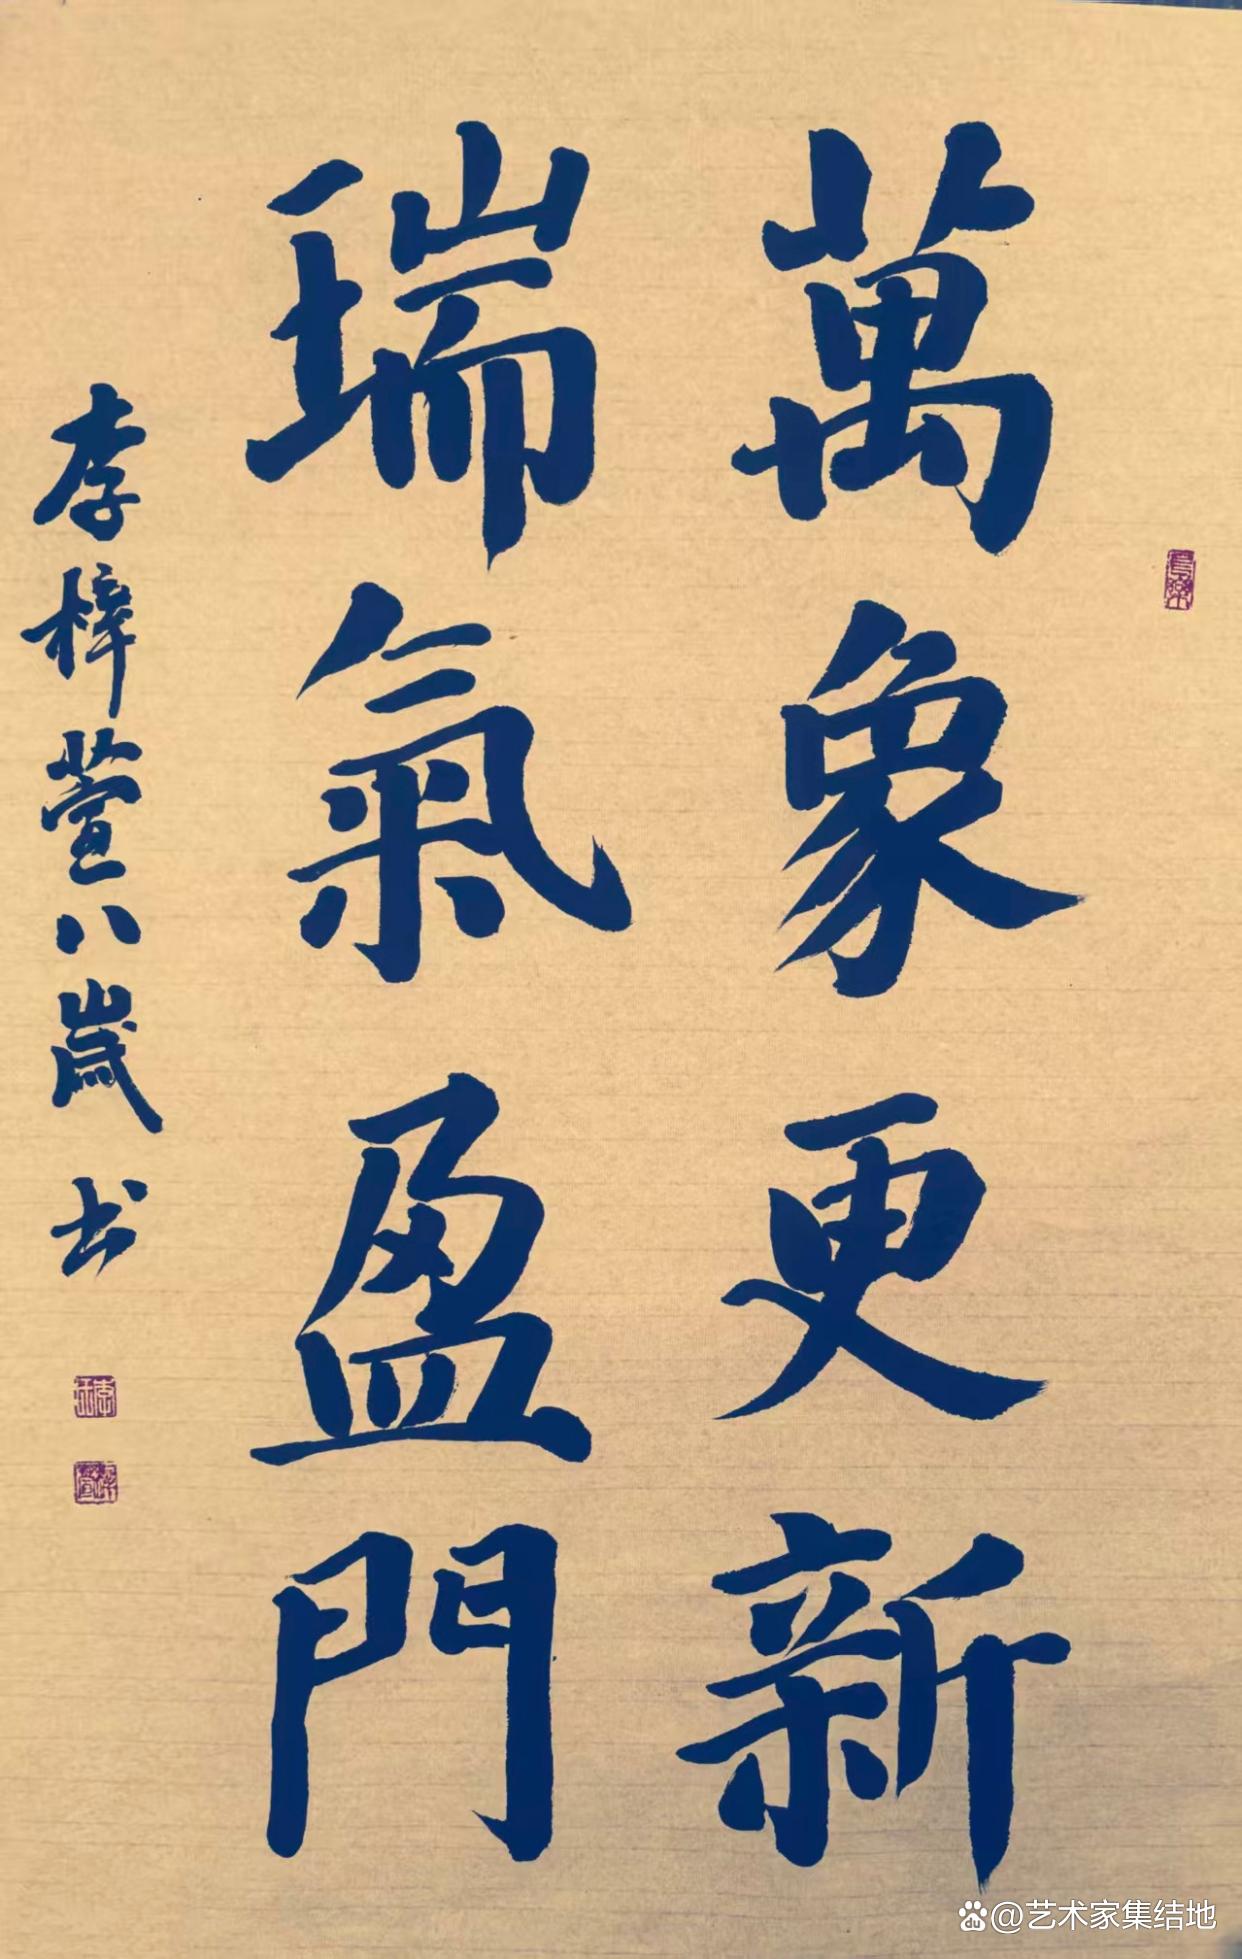 萬象更新
瑞氣盈門
李梓萱八歲书
長樂
@艺术家集结地